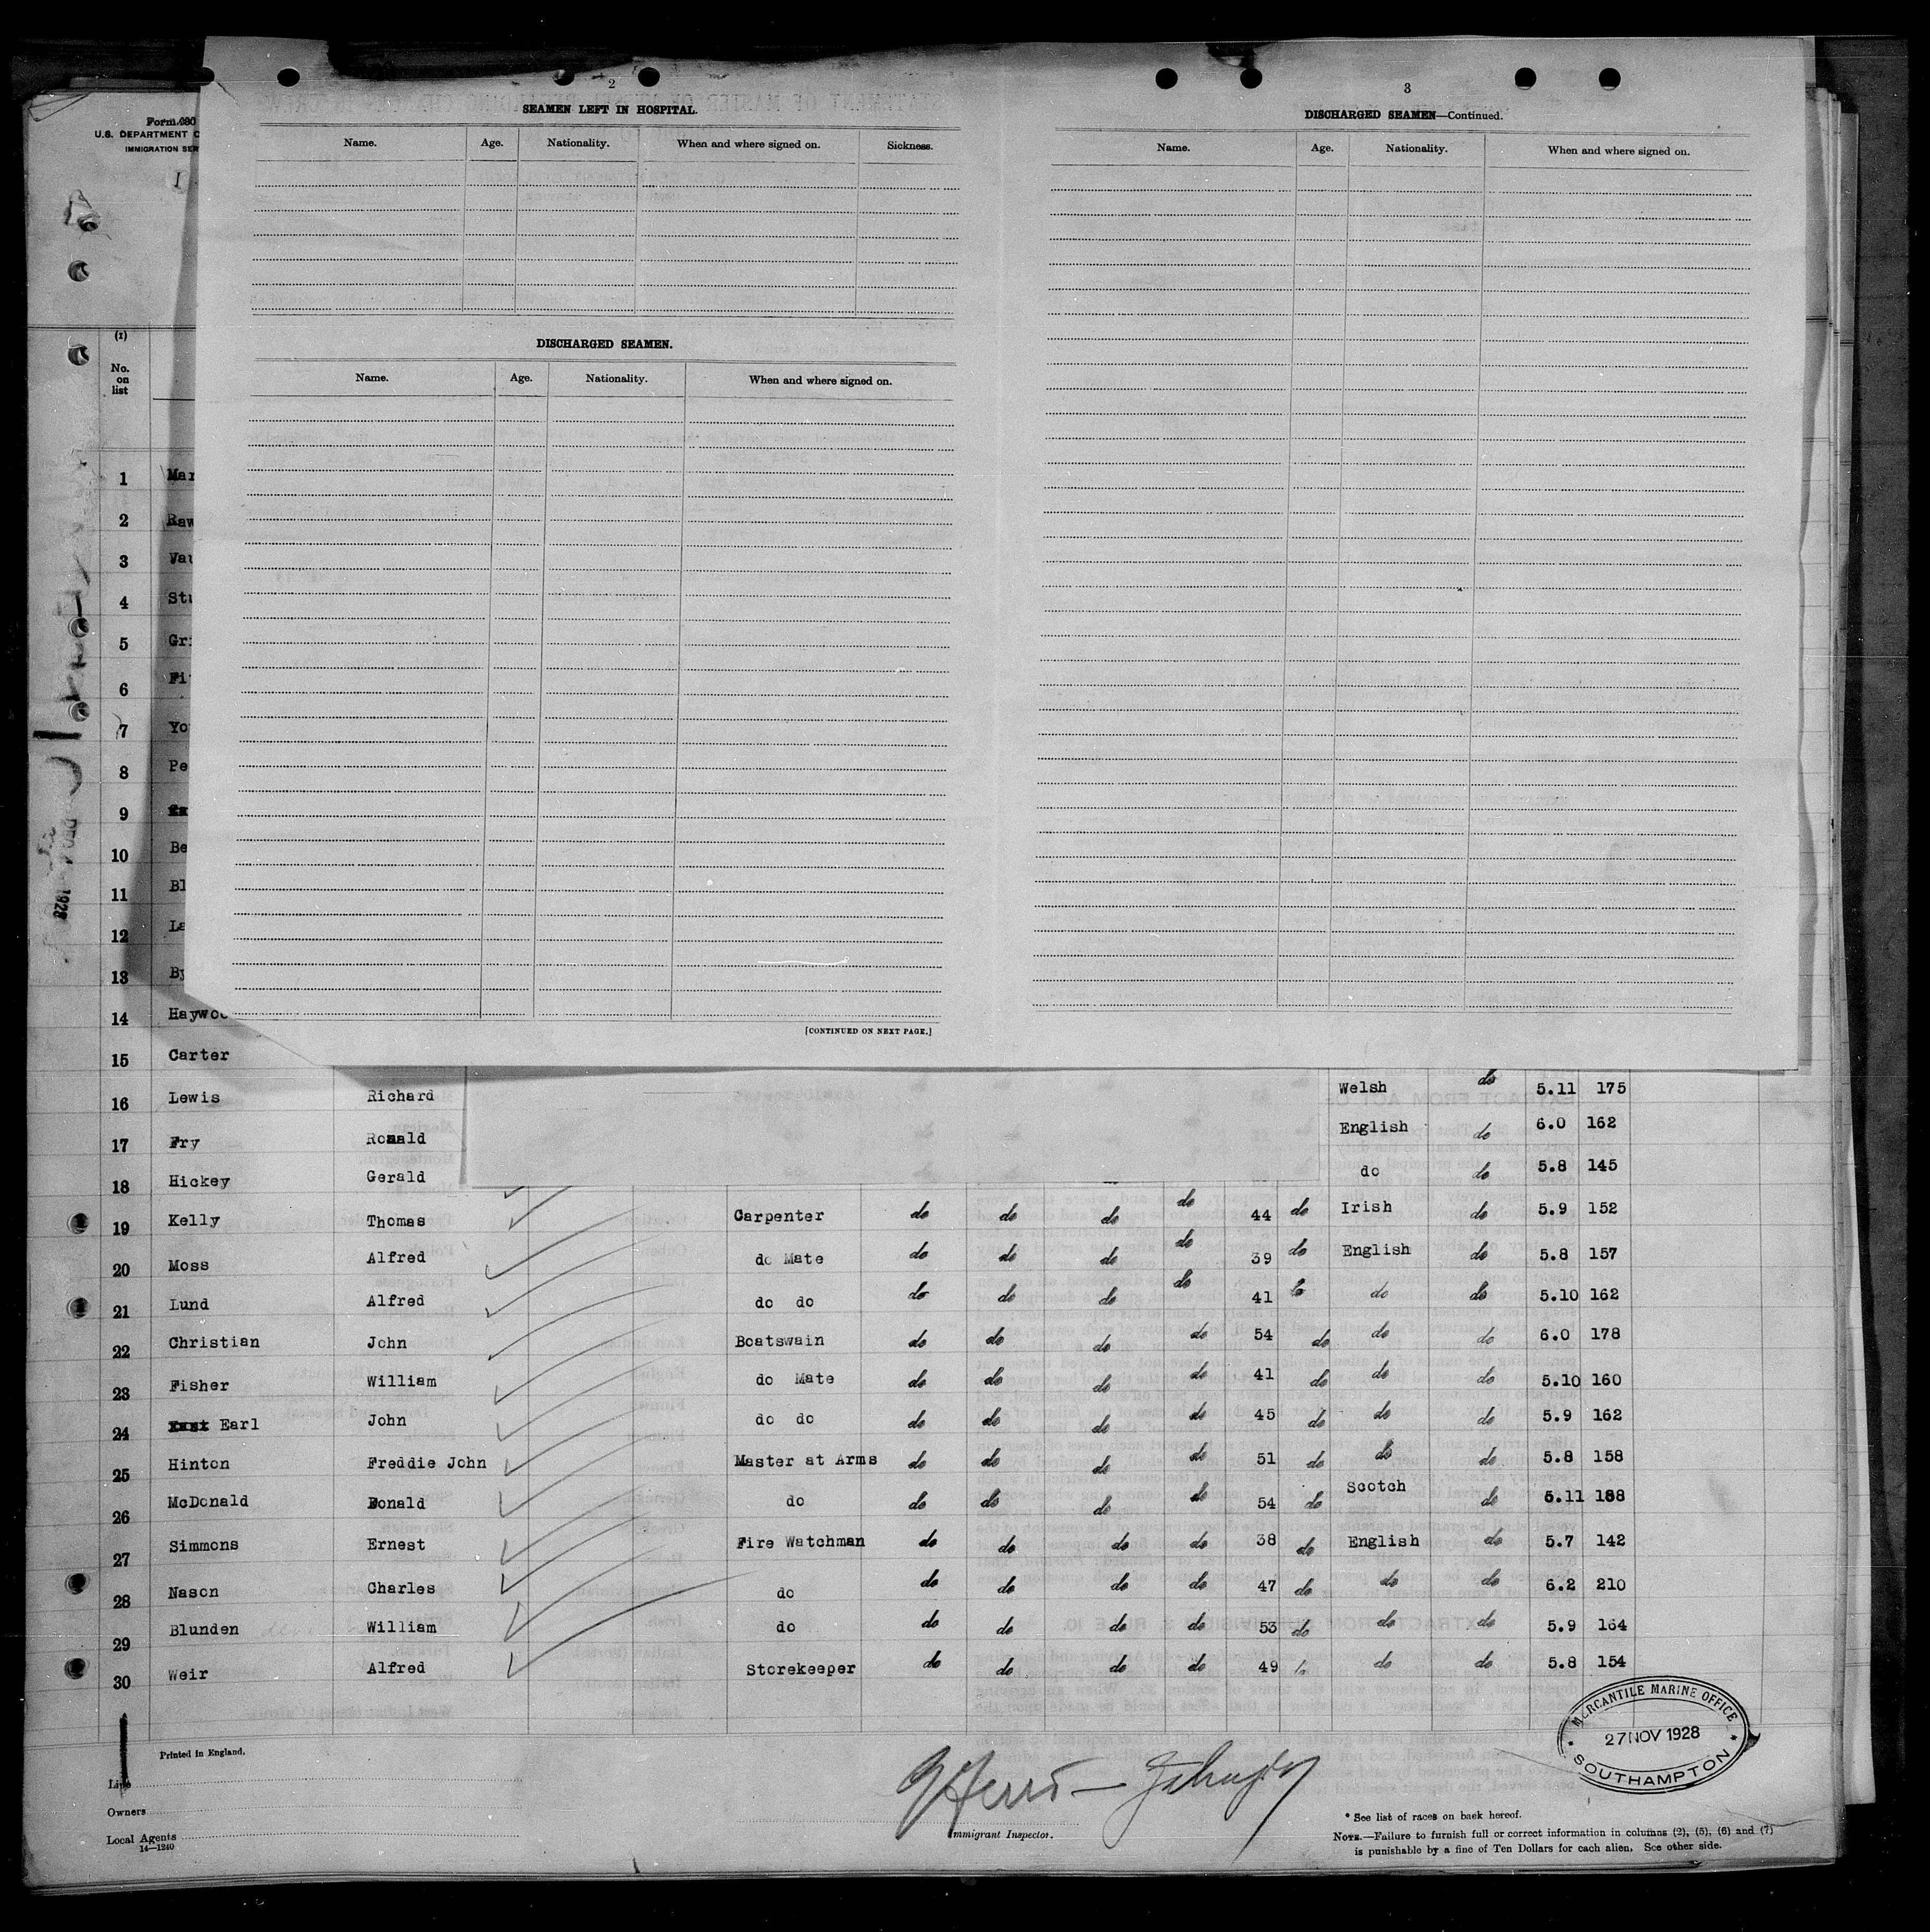 2
SEAMEN LEFT IN HOSPITAL.
Name. Age. Nationality. When and where signed on. Sickness.
DISCHARGED SEAMEN.
Name. Age. Nationality. When and where signed on.
[CONTINUED ON NEXT PAGE.]
3
DISCHARGED SEAMEN—Continued.
Name. Age. Nationality. When and where signed on.
Form 680
U.S. DEPARTMENT
IMMIGRATION SER
(1)
No.
on
list
1 Mar
2 Raw
3 Vau
4 Stu
5 Gri
6 Fi
7 Yo
8 Pe
9
10 Be
11 Bl
12 La
13 By
14 Haywoo
15 Carter
16 Lewis Richard Welsh do 5.11 175
17 Fry Ronald English do 6.0 162
18 Hickey Gerald do do 5.8 145
19 Kelly Thomas Carpenter do do do do 44 do Irish do 5.9 152
20 Moss Alfred do Mate do do do do 39 do English do 5.8 157
21 Lund Alfred do do do do do do 41 do do do 5.10 162
22 Christian John Boatswain do do do do 54 do do do 6.0 178
23 Fisher William do Mate do do do do 41 do do do 5.10 160
24 Earl John do do do do do do 45 do do do 5.9 162
25 Hinton Freddie John Master at Arms do do do do 51 do do do 5.8 158
26 McDonald Donald do do do do do 54 do Scotch do 5.11 188
27 Simmons Ernest Fire Watchman do do do do 38 do English do 5.7 142
28 Nason Charles do do do do do 47 do do do 6.2 210
29 Blunden William do do do do do 53 do do do 5.9 164
30 Weir Alfred Storekeeper do do do do 49 do do do 5.8 154
1928
MERCANTILE MARINE OFFICE
27 NOV 1928
SOUTHAMPTON
Printed in England.
Line
Owners
Local Agents
14—1240
Immigrant Inspector.
* See list of races on back hereof.
NOTE.—Failure to furnish full or correct information in columns (2), (5), (6) and (7)
is punishable by a fine of Ten Dollars for each alien. See other side.